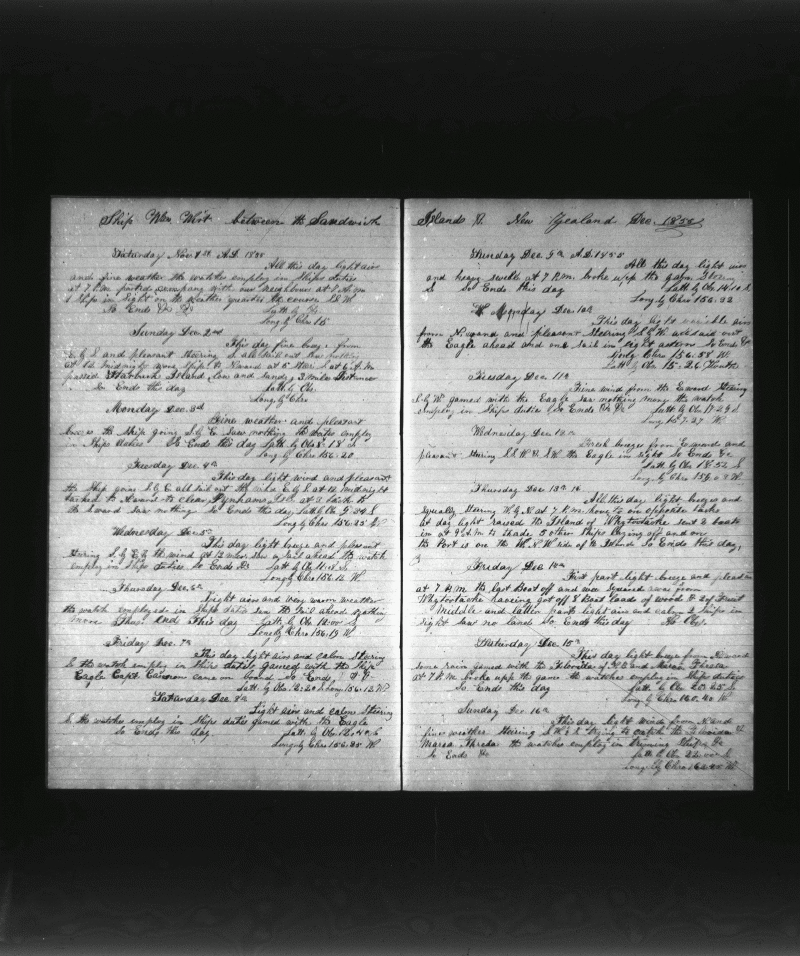 Ship Wm Wirt between the Sandwich
Saturday Nov. 1st A.D. 1855
All this day light airs
and fine weather the watches employ in Ships duties
at 7 P.M. parted company with our neighbour at 8 A.M.
Ships in sight on the weather quarter the course S.S.W.
So Ends
Long by Chro 15
Sunday Dec. 2nd
This day fine breeze from
E by S and pleasant Steering S all sail out
at 12 midnight wore Ship to N ward at 5 at 6 A.M.
passed Starbuck Island Lon and landg 3 miles distance
So Ends this day Latt by Obs
Long by Chro
Monday Dec. 3rd
Fine weather and pleasant
the Ship going S by E Saw nothing the watches employ
in Ships duties So Ends this day Latt by Obs 8:18 S
Long by Chro 156:20
Tuesday Dec. 4th
This day light wind and pleasant
the Ship going S by E all sail out the wind E by S at 12 midnight
tacked to N ward to clear Penrhyns Isl at 2
S ward saw nothing So Ends this day Latt by Obs 9:39 S
Long by Chro 156:25 W
Wednesday Dec. 5
This day light breeze and pleasant
Steering S by E by the wind at 12 saw a sail ahead the watch
employ in Ships duties So Ends Latt by Obs 11:8 S
Long by Chro 156:12 W
Thursday Dec. 6th
Light airs and very warm weather
the watch employed in Ships duties saw the Sail ahead nothing
more Thus End This day Latt by Obs 12:00 S
Long by Chro 156:19 W
Friday Dec. 7th
This day light airs and calm Steering
S the watch employ in Ships duties gamed with the Ship
Eagle Capt came on board So Ends
Latt by Obs 12:20 S Long 156:12 W
Saturday Dec 8th
Light airs and calms Steering
S the watches employ in Ships duties gamed with the Eagle
So Ends this day. Latt by Obs 12:40 S
Long by Chro 156:25 W
Islands & New Zealand Dec. 1855
Sunday Dec. 9th A.D. 1855
All this day light airs
and heavy swells at 7 P.M. broke up the gam Steering
S So Ends this day Latt by Obs 14:10 S
Long by Chro 156:32
Monday Dec. 10th
This day light variable airs
from N ward and pleasant Steering S by W all sail out
the Eagle ahead and one sail in sight astern So Ends
Long Chro 156:58 W
Latt by Obs 15:26 South
Tuesday Dec. 11th
Fine wind from the E ward Steering
S by W gamed with the Eagle saw nothing more the watch
employ in Ships duties So Ends Latt by Obs 17:29 S
Long 157:27 W
Wednesday Dec 12th
Fresh breezes from E wards and
pleasant Steering S S W & S.W. the Eagle in sight So Ends
Latt by Obs 18:52 S
Long by Chro 159:09 W
Thursday Dec 13th
All this day light breezes and
Squally Steering W by N at 7 P.M. hove to on opposite tacks
at day light raised the Island of Whytootacke sent 2 boats
in at 9 A.M. to trade 5 other Ships laying off and on
the Port is on the W.N.W. side of the Island So Ends this day
Friday Dec 14th
First part light breeze and pleasant
at 7 P.M. the last Boat off and we squared away from
Whytootacke having got off 8 Boat loads of wood & 2 of Fruit
Middle and latter parts light airs and calm 2 Ships in
sight saw no land So Ends this day No Obs.
Saturday Dec 15th
This day light breeze from N ward
some rain gamed with the and Maria Theresa
at 7 P.M. broke upp the gam the watches employ in Ships duties
So Ends this day Latt by Obs 20:25 S
Long by Chro 160:40 W
Sunday Dec 16th
This day light wind from N and
fine weather Steering S.W. by S trying to catch the
Maria Theresa the watches employ in
So Ends Latt by Obs 22:00 S
Long by Chro 162:20 W